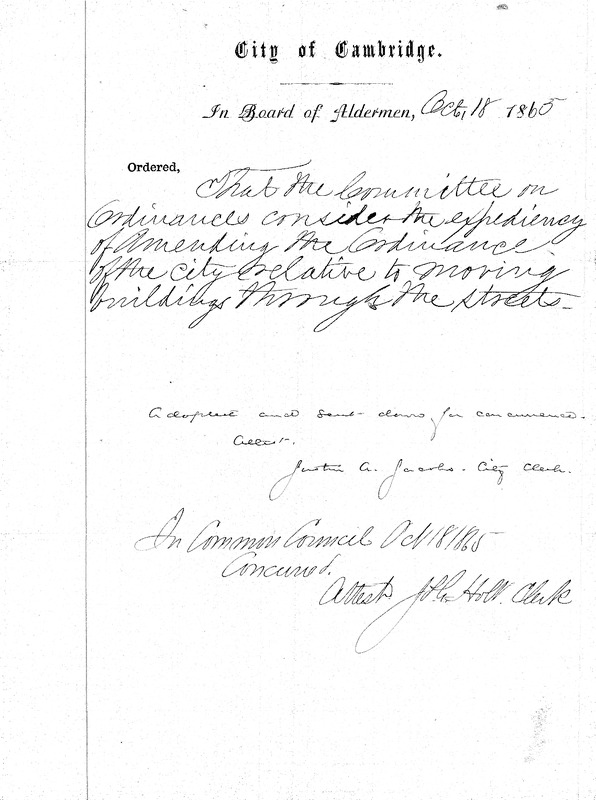 City of Cambridge.
In Board of Aldermen, Oct, 18 1865
Ordered,
That the Committee on
Ordinances consider the expediency
of amending the Ordinance
of the city relative to moving
buildings through the streets-
Adopted and sent down for concurrence.
Attest.
Justin A. Jacobs. City Clerk.
In Common Council Oct 18 1865
Concurred.
Attest Holt. Clerk